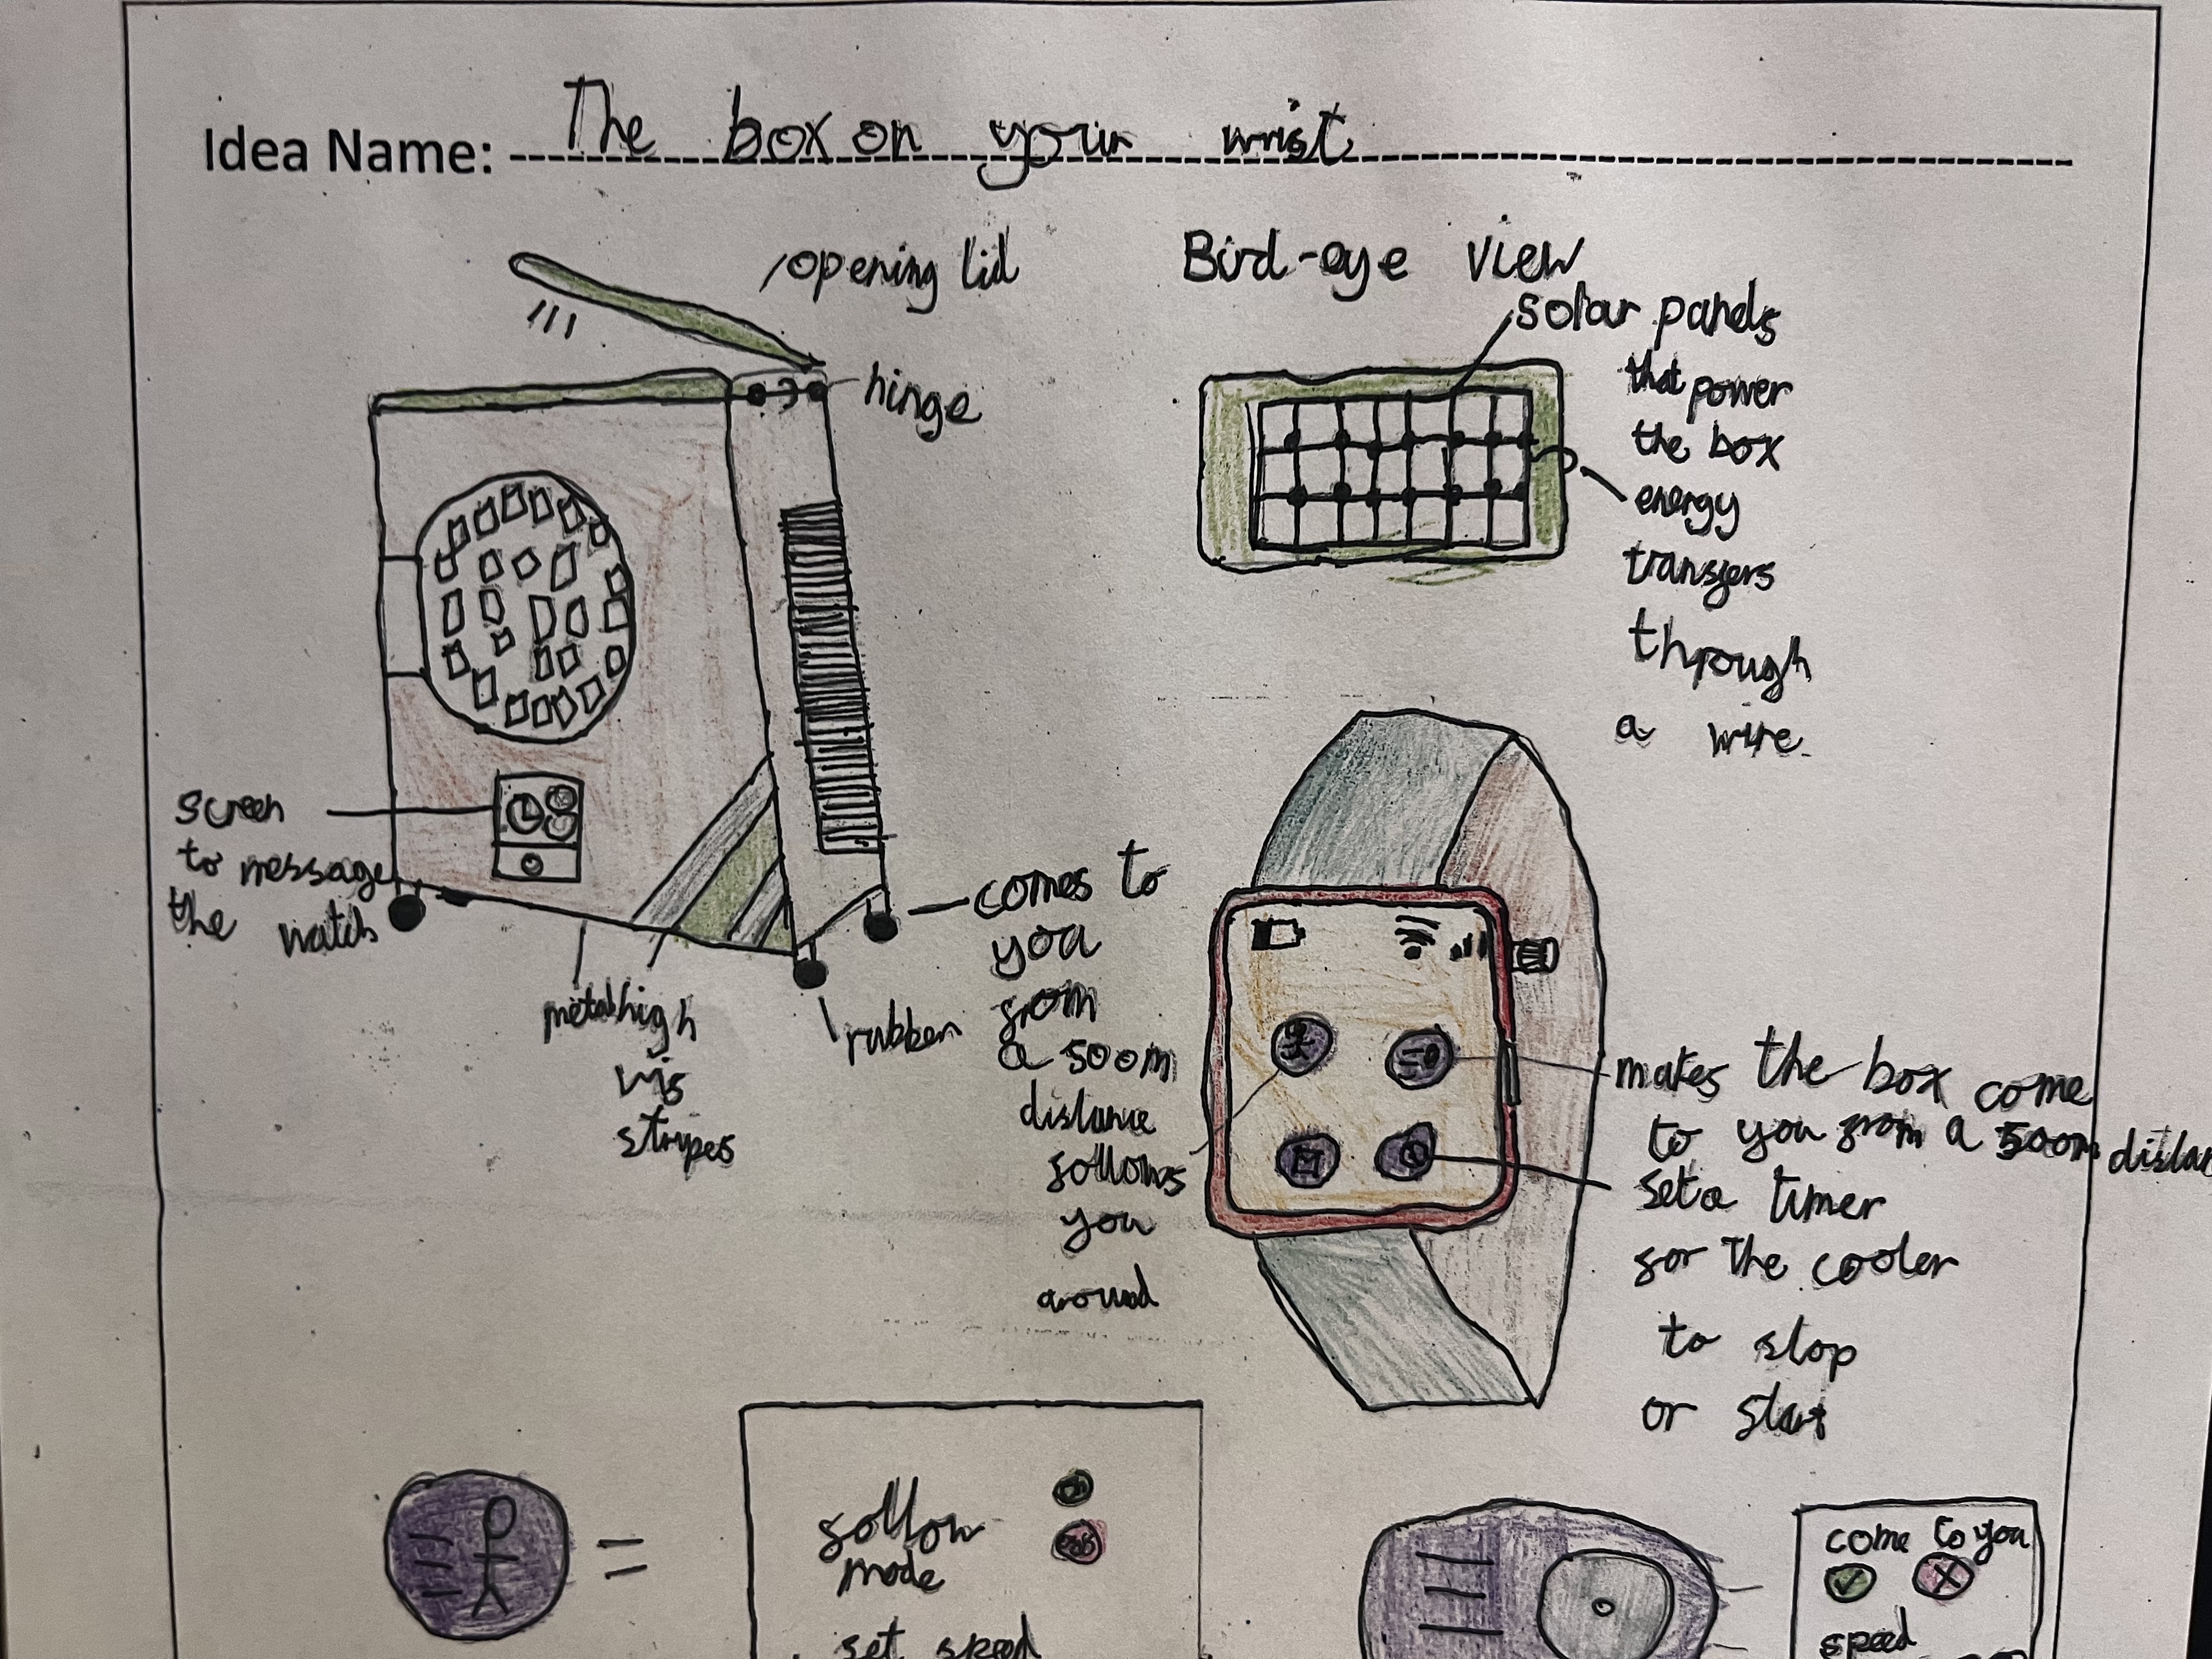 Idea Name: The box on your wrist
opening lid
hinge
Bird-eye view
solar panels
that power
the box
energy
transfers
through
a wire.
screen
to message
the watch
metal high
vis
stripes
rubber
comes to
you
from
a 500m
distance
follows
you
around
makes the box come
to you from a 500m distan
set a timer
for the cooler
to stop
or start
=
follow
mode
on
off
set speed
come to you
speed